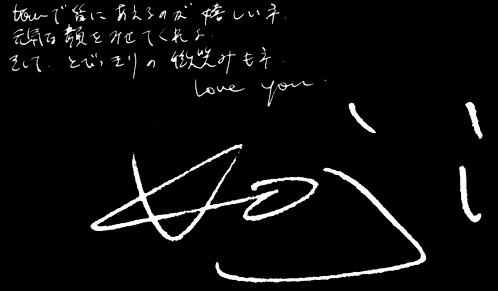 tourで皆にあえるのが嬉しいネ.
元気な顔をみせてくれよ
そして、とびっきりの微笑みもネ.
Love you.